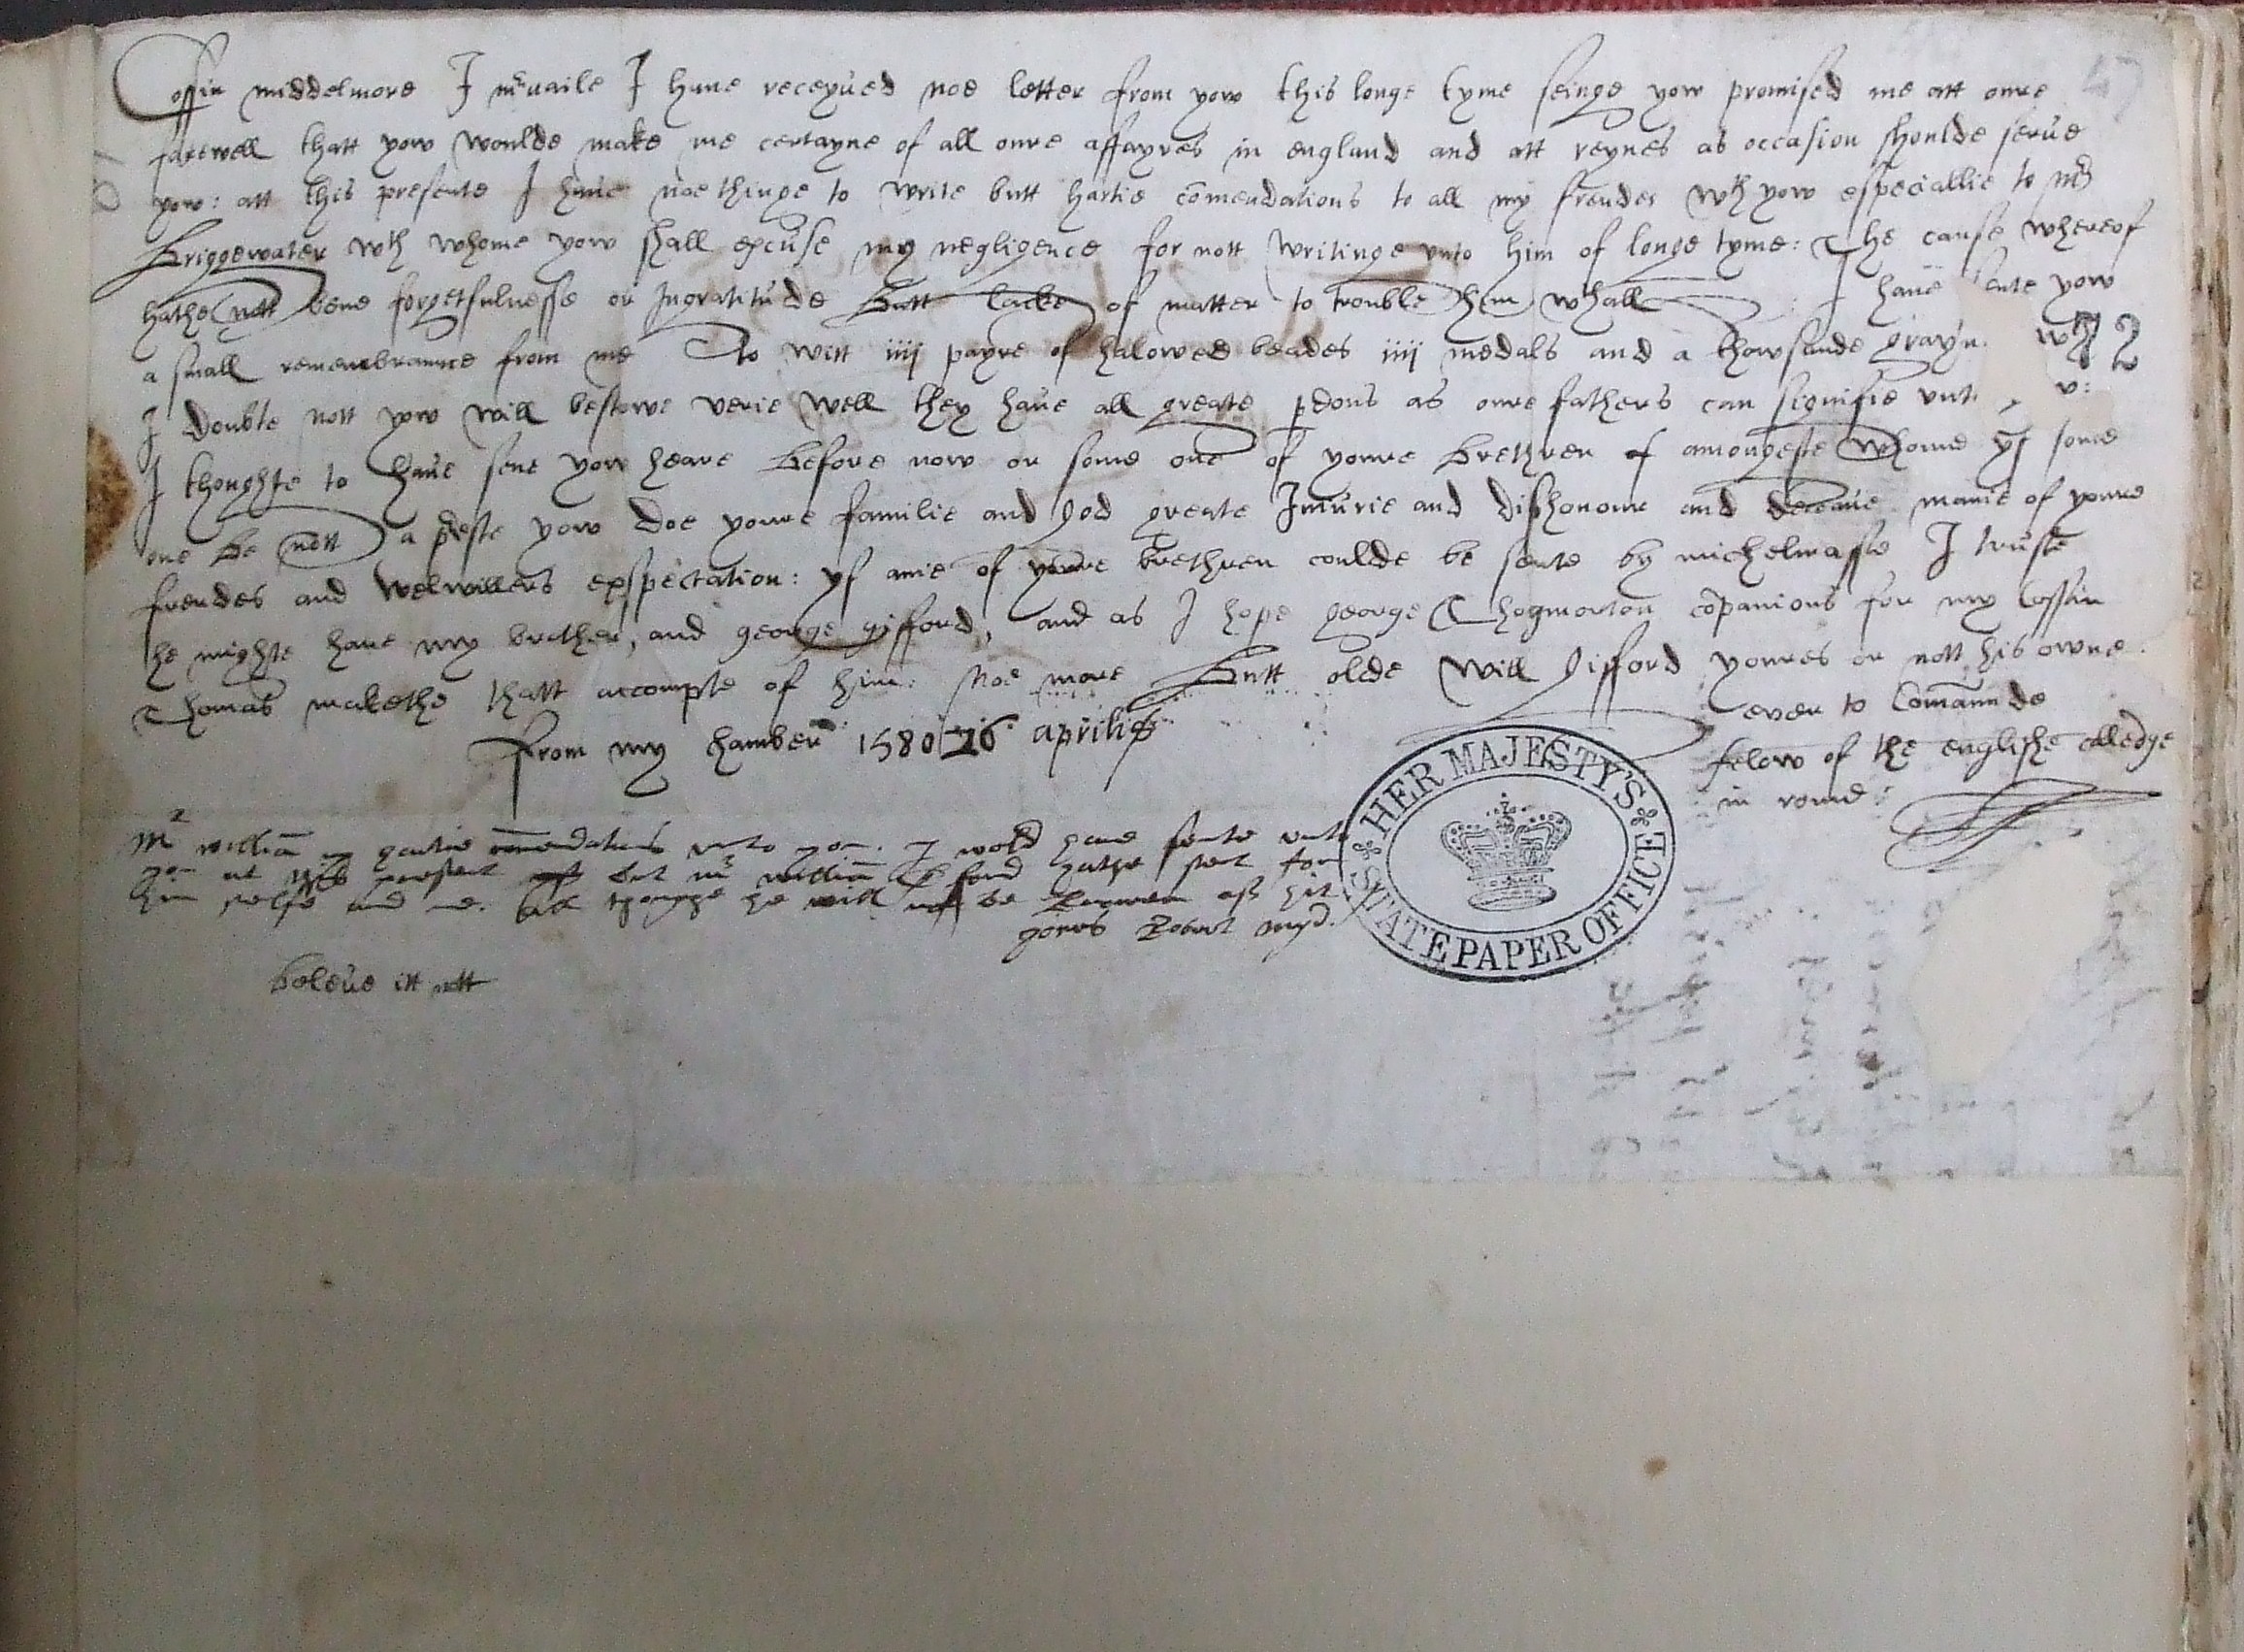 47
Cossin middelmore I mrvaile I haue receyued noe letter from yow this longe tyme seinge yow promised me att oure
farewell thatt yow woulde make me certayne of all oure affayres in england and att reynes as occasion shoulde serue
yow: att this presente I haue noethinge to write butt hartie comendations to all my frendes wth yow especiallie to mr
Briggewater wth whome yow shall excuse my negligence for nott writinge vnto him of longe tyme: The cause whereof
hathe nott bene forgetfulnesse or Ingratitude Butt lacke of matter to trouble him whall I haue sente yow
a small remembraunce from me To witt iiij payre of halowed beades iiij medals and a thowsande grayn wch
I double nott yow will bestowe verie well they haue all greate pdons as oure fathers can signifie vnt v:
I thoughte to haue sene yow heare Before now or some one of youre Brethren of amongeste whome yf some
one Be nott a preste yow doe youre familie and god greate Iniurie and dishonour and deceaue manie of youre
frendes and welwillers exspectation: yf anie of youre brethren coulde be sente by michelmasse I truste
he mighte haue my brother, and george gifford, and as I hope george Thogmorton copanions for my Cossin
Thomas makethe thatt accompte of him: Noe more Butt olde Will Gifford youres or nott his owne
ever to Comaunde
From my chamber 1580 26 aprilis
felow of the englishe colledge
in rome
Mr william comendations vnto yow. I wold haue sente vnto
yow at this present but mr william hathe sent for
him selfe and me. but thoughe he will not be knowen
yours Robert
beleue itt nott
HER MAJESTY'S STATE PAPER OFFICE